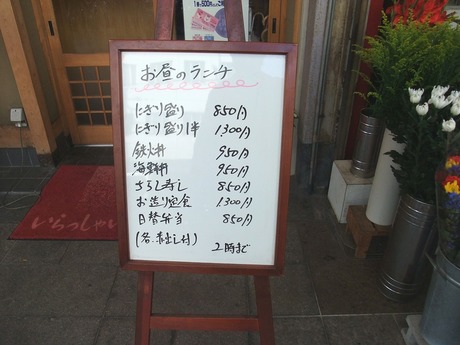 お昼のランチ
にぎり盛り 850円
にぎり盛り1半 1300円
鉄火丼 950円
海鮮丼 950円
ちらし寿し 850円
お造り定食 1300円
日替弁当 850円
(各、赤出し付) 2時まで
いらっしゃい